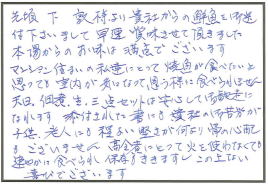 先頃 下 敦様より貴社からの鮮魚を御送
付下さいまして早速 賞味させて頂きました
本場からのお味は満点でございます
マンション住まいの私達にとって焼魚が食べたいと
思っても室内が臭になって思う様に食べられません
天日、佃煮、生、三点セットは安心して御馳走に
なれます 添付された書にも貴社の御苦労が
子供、老人にも程よい堅さが何より嬉しい心面で
もございません 高令者にとって火を使わなくても
速やかに食べられ保存もききますし この上ない
喜びでございます